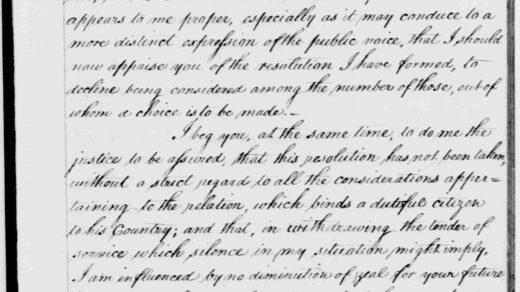 appears to me proper, especially as it may conduce to a
more distinct expression of the public voice, that I should
now appraise you of the resolution I have formed, to
decline being considered among the number of those, out of
whom a choice is to be made. –
I beg you, at the same time, to do me the
justice to be assured, that this resolution has not been taken,
without a strict regard to all the considerations apper=
taining to the relation, which binds a dutiful citizen
to his Country; and that, in withdrawing the tender of
service which silence in my situation might imply,
I am influenced by no diminution of zeal for your future